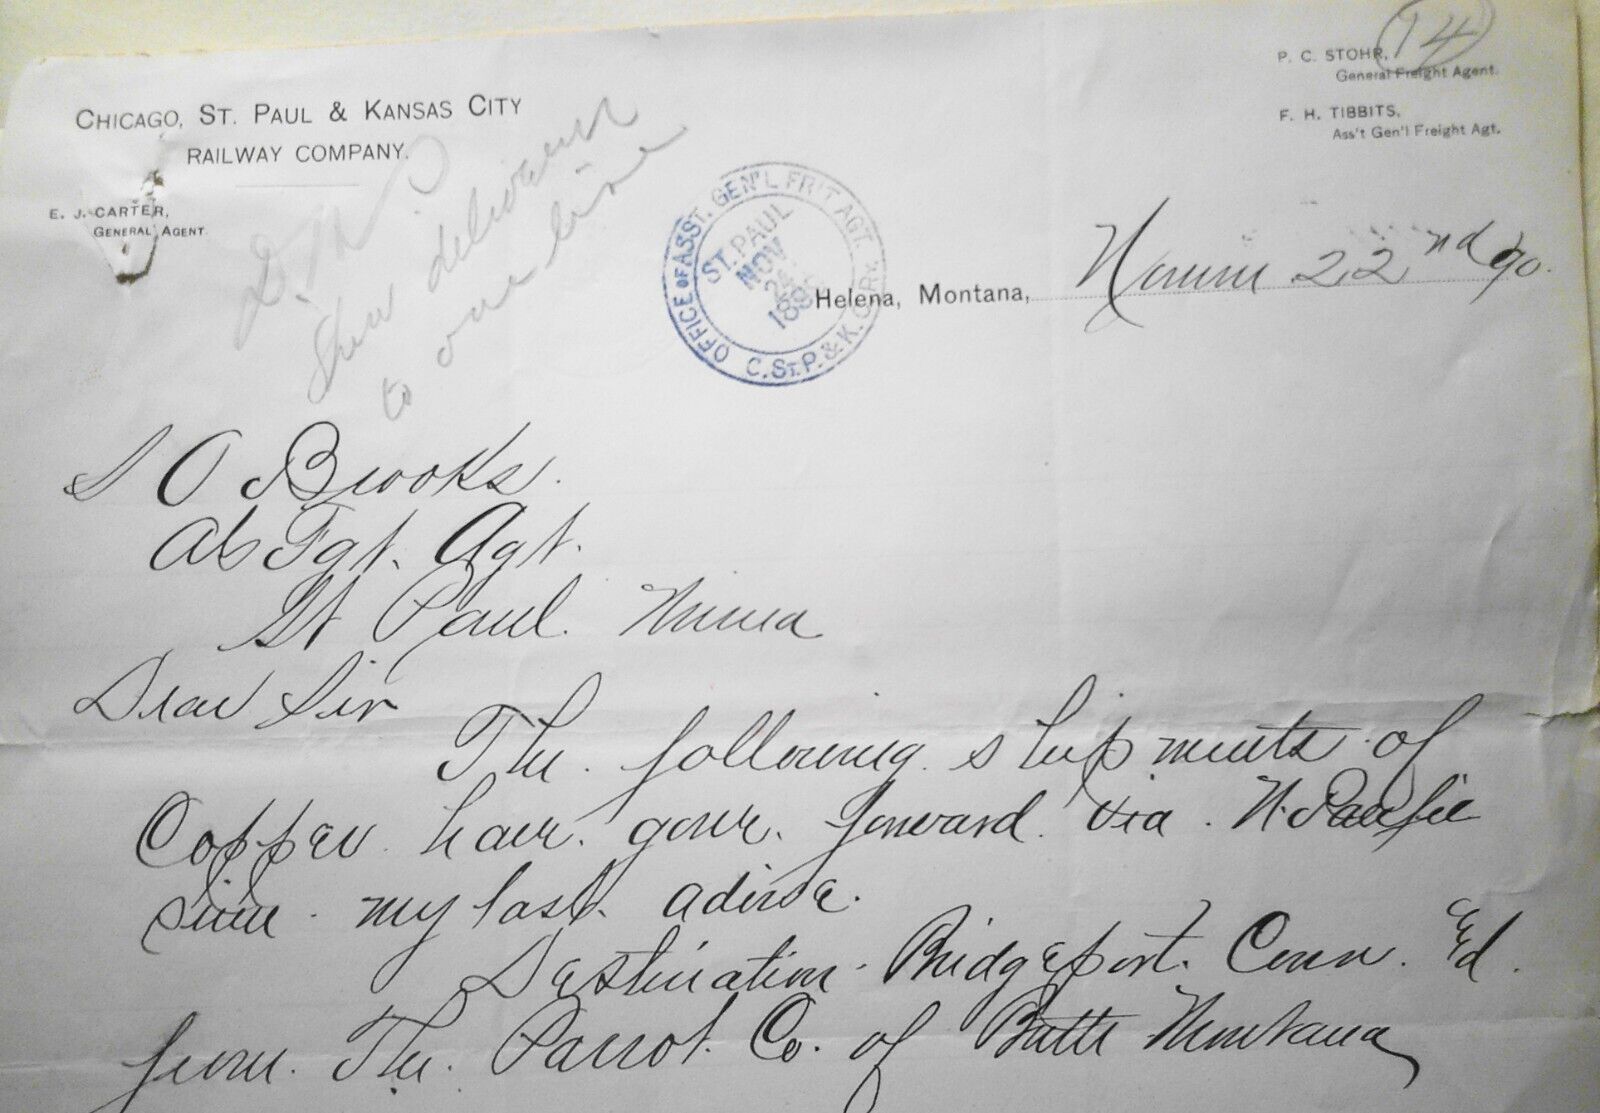 14
P. C. STOHR,
General Freight Agent.
F. H. TIBBITS,
Ass't Gen'l Freight Agt.
CHICAGO, ST. PAUL & KANSAS CITY
RAILWAY COMPANY.
E. J. CARTER,
GENERAL AGENT.
Show delivery
to our line
OFFICE OF ASST. GEN'L FR'T AGT. C. ST. P. & K. C. RY.
ST. PAUL
NOV
Helena, Montana, 22nd 90.
O Brooks.
Fgt. Agt.
St Paul. Minna
Dear Sir
The following shipments of
Copper have gone forward via N. Pacific
since my last advice.
Destination Bridgeport. Conn.
from The Parrot Co. of Butte Montana